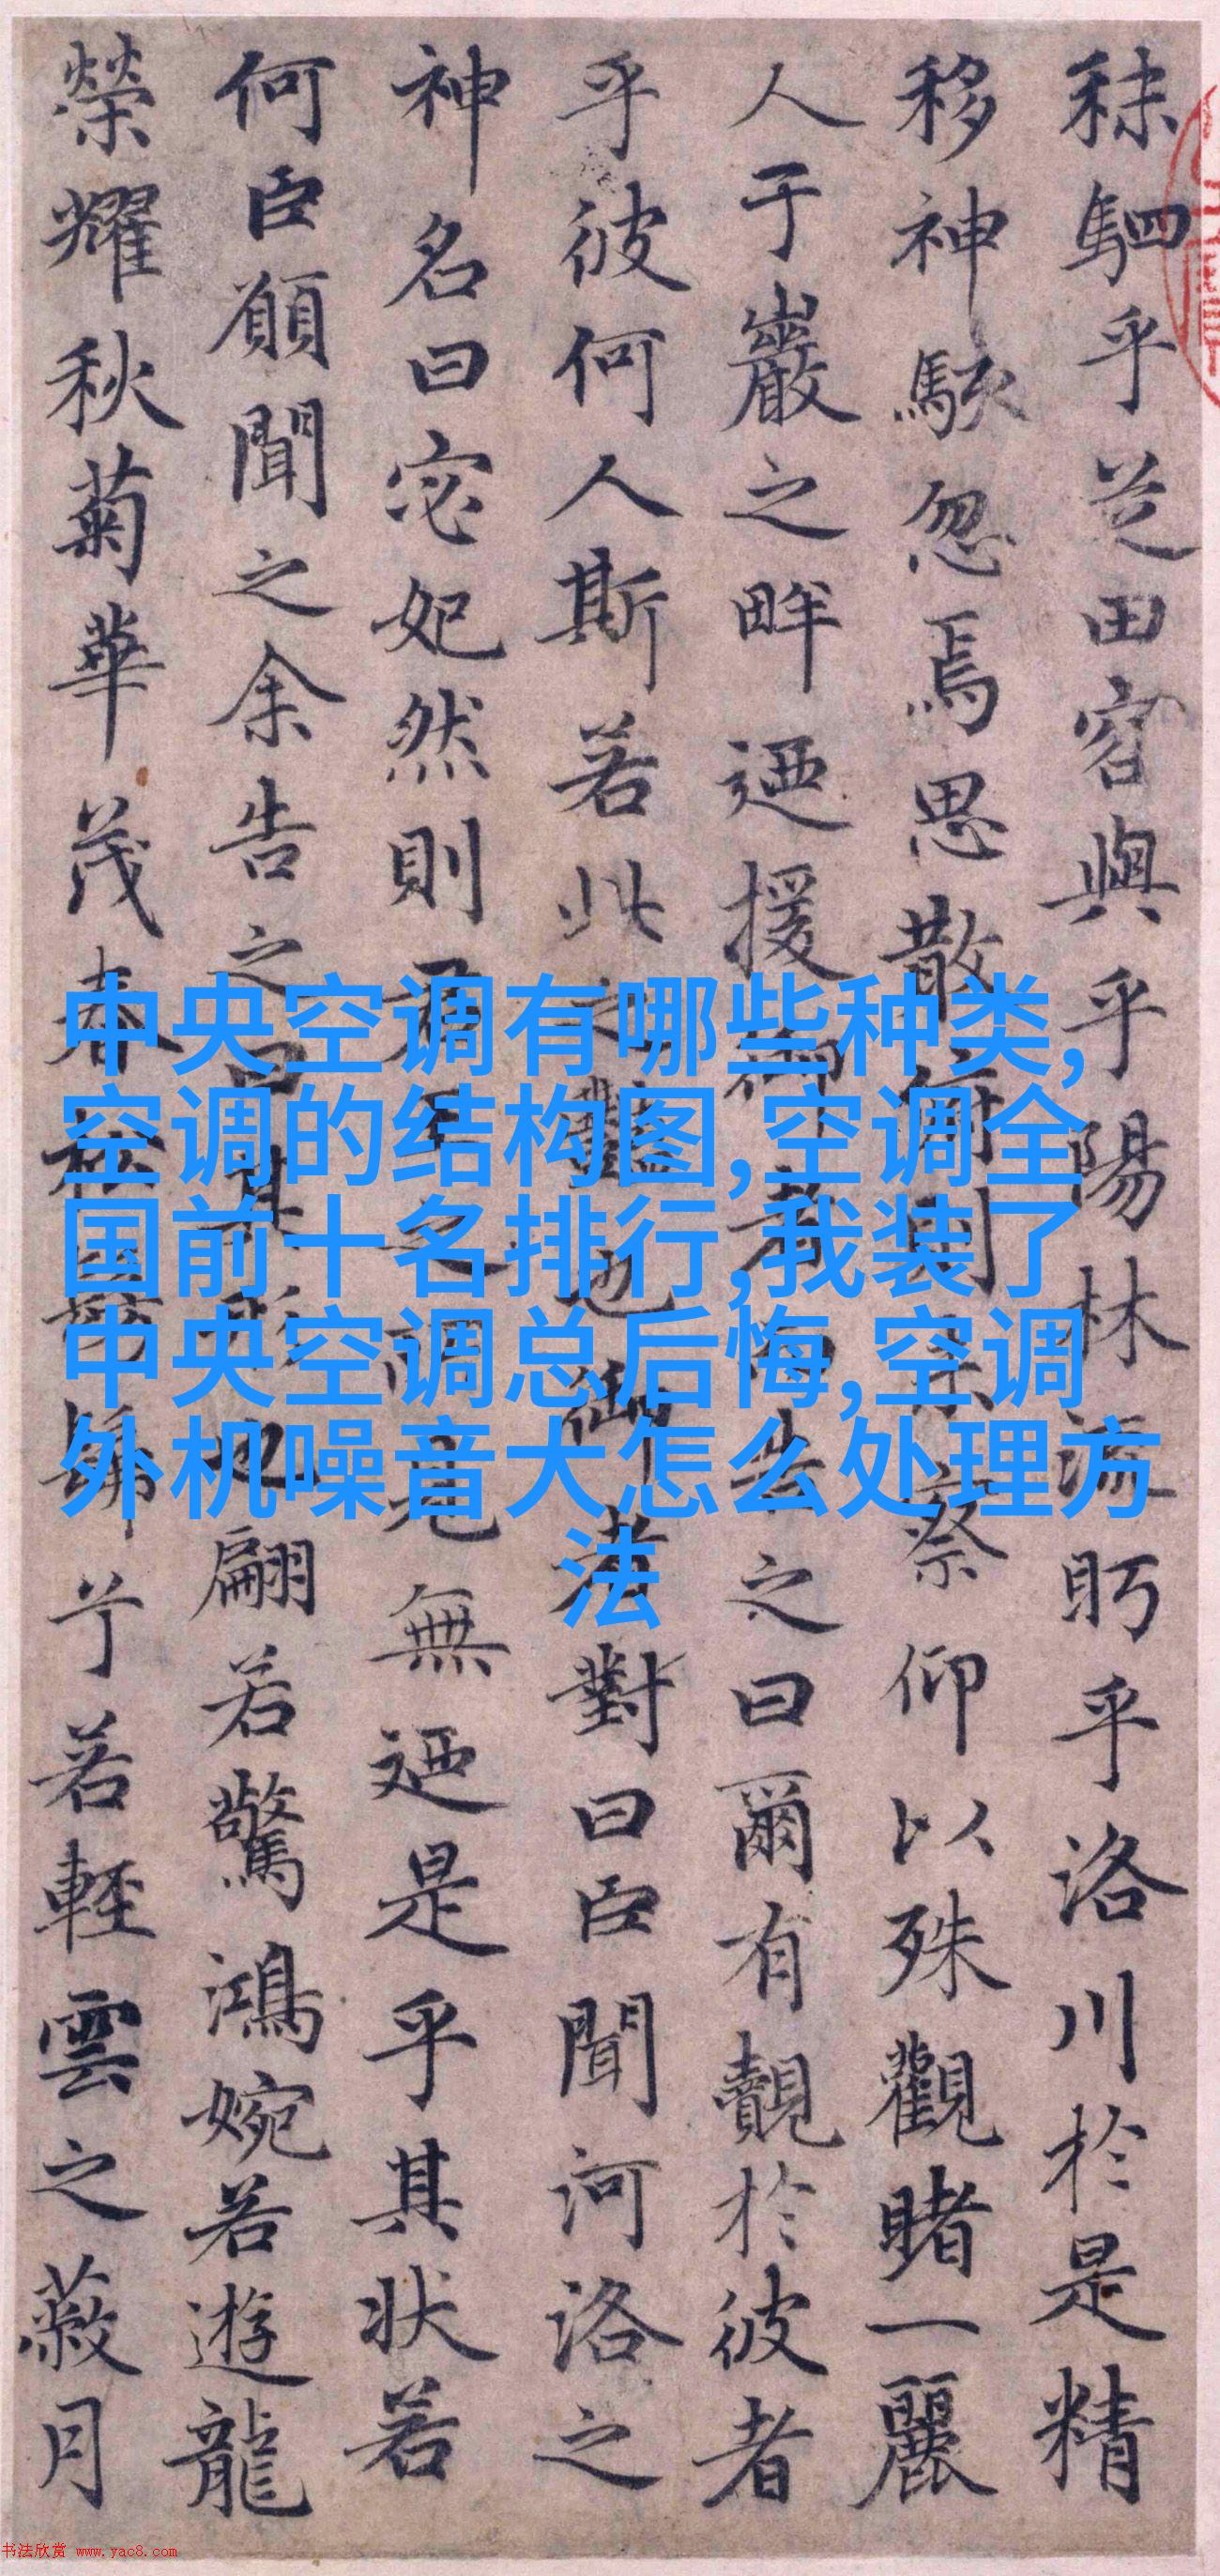 秣駟乎芝田容與乎陽林流眄乎洛川於是精
移神駭忽焉思散俯則未察仰以殊觀睹一麗
人于巖之畔迺援御者而告之曰爾有覿於彼者
乎彼何人斯若此之豔也御者對曰臣聞河洛之
神名曰宓妃然則君王之所見無迺是乎其狀若
何臣願聞之余告之曰其形也翩若驚鴻婉若遊龍
榮耀秋菊華茂春松髣髴兮若輕雲之蔽月
中央空调有哪些种类,
空调的结构图,空调全
国前十名排行,我装了
中央空调总后悔,空调
外机噪音大怎么处理方
法
书法欣赏 www.yac8.com